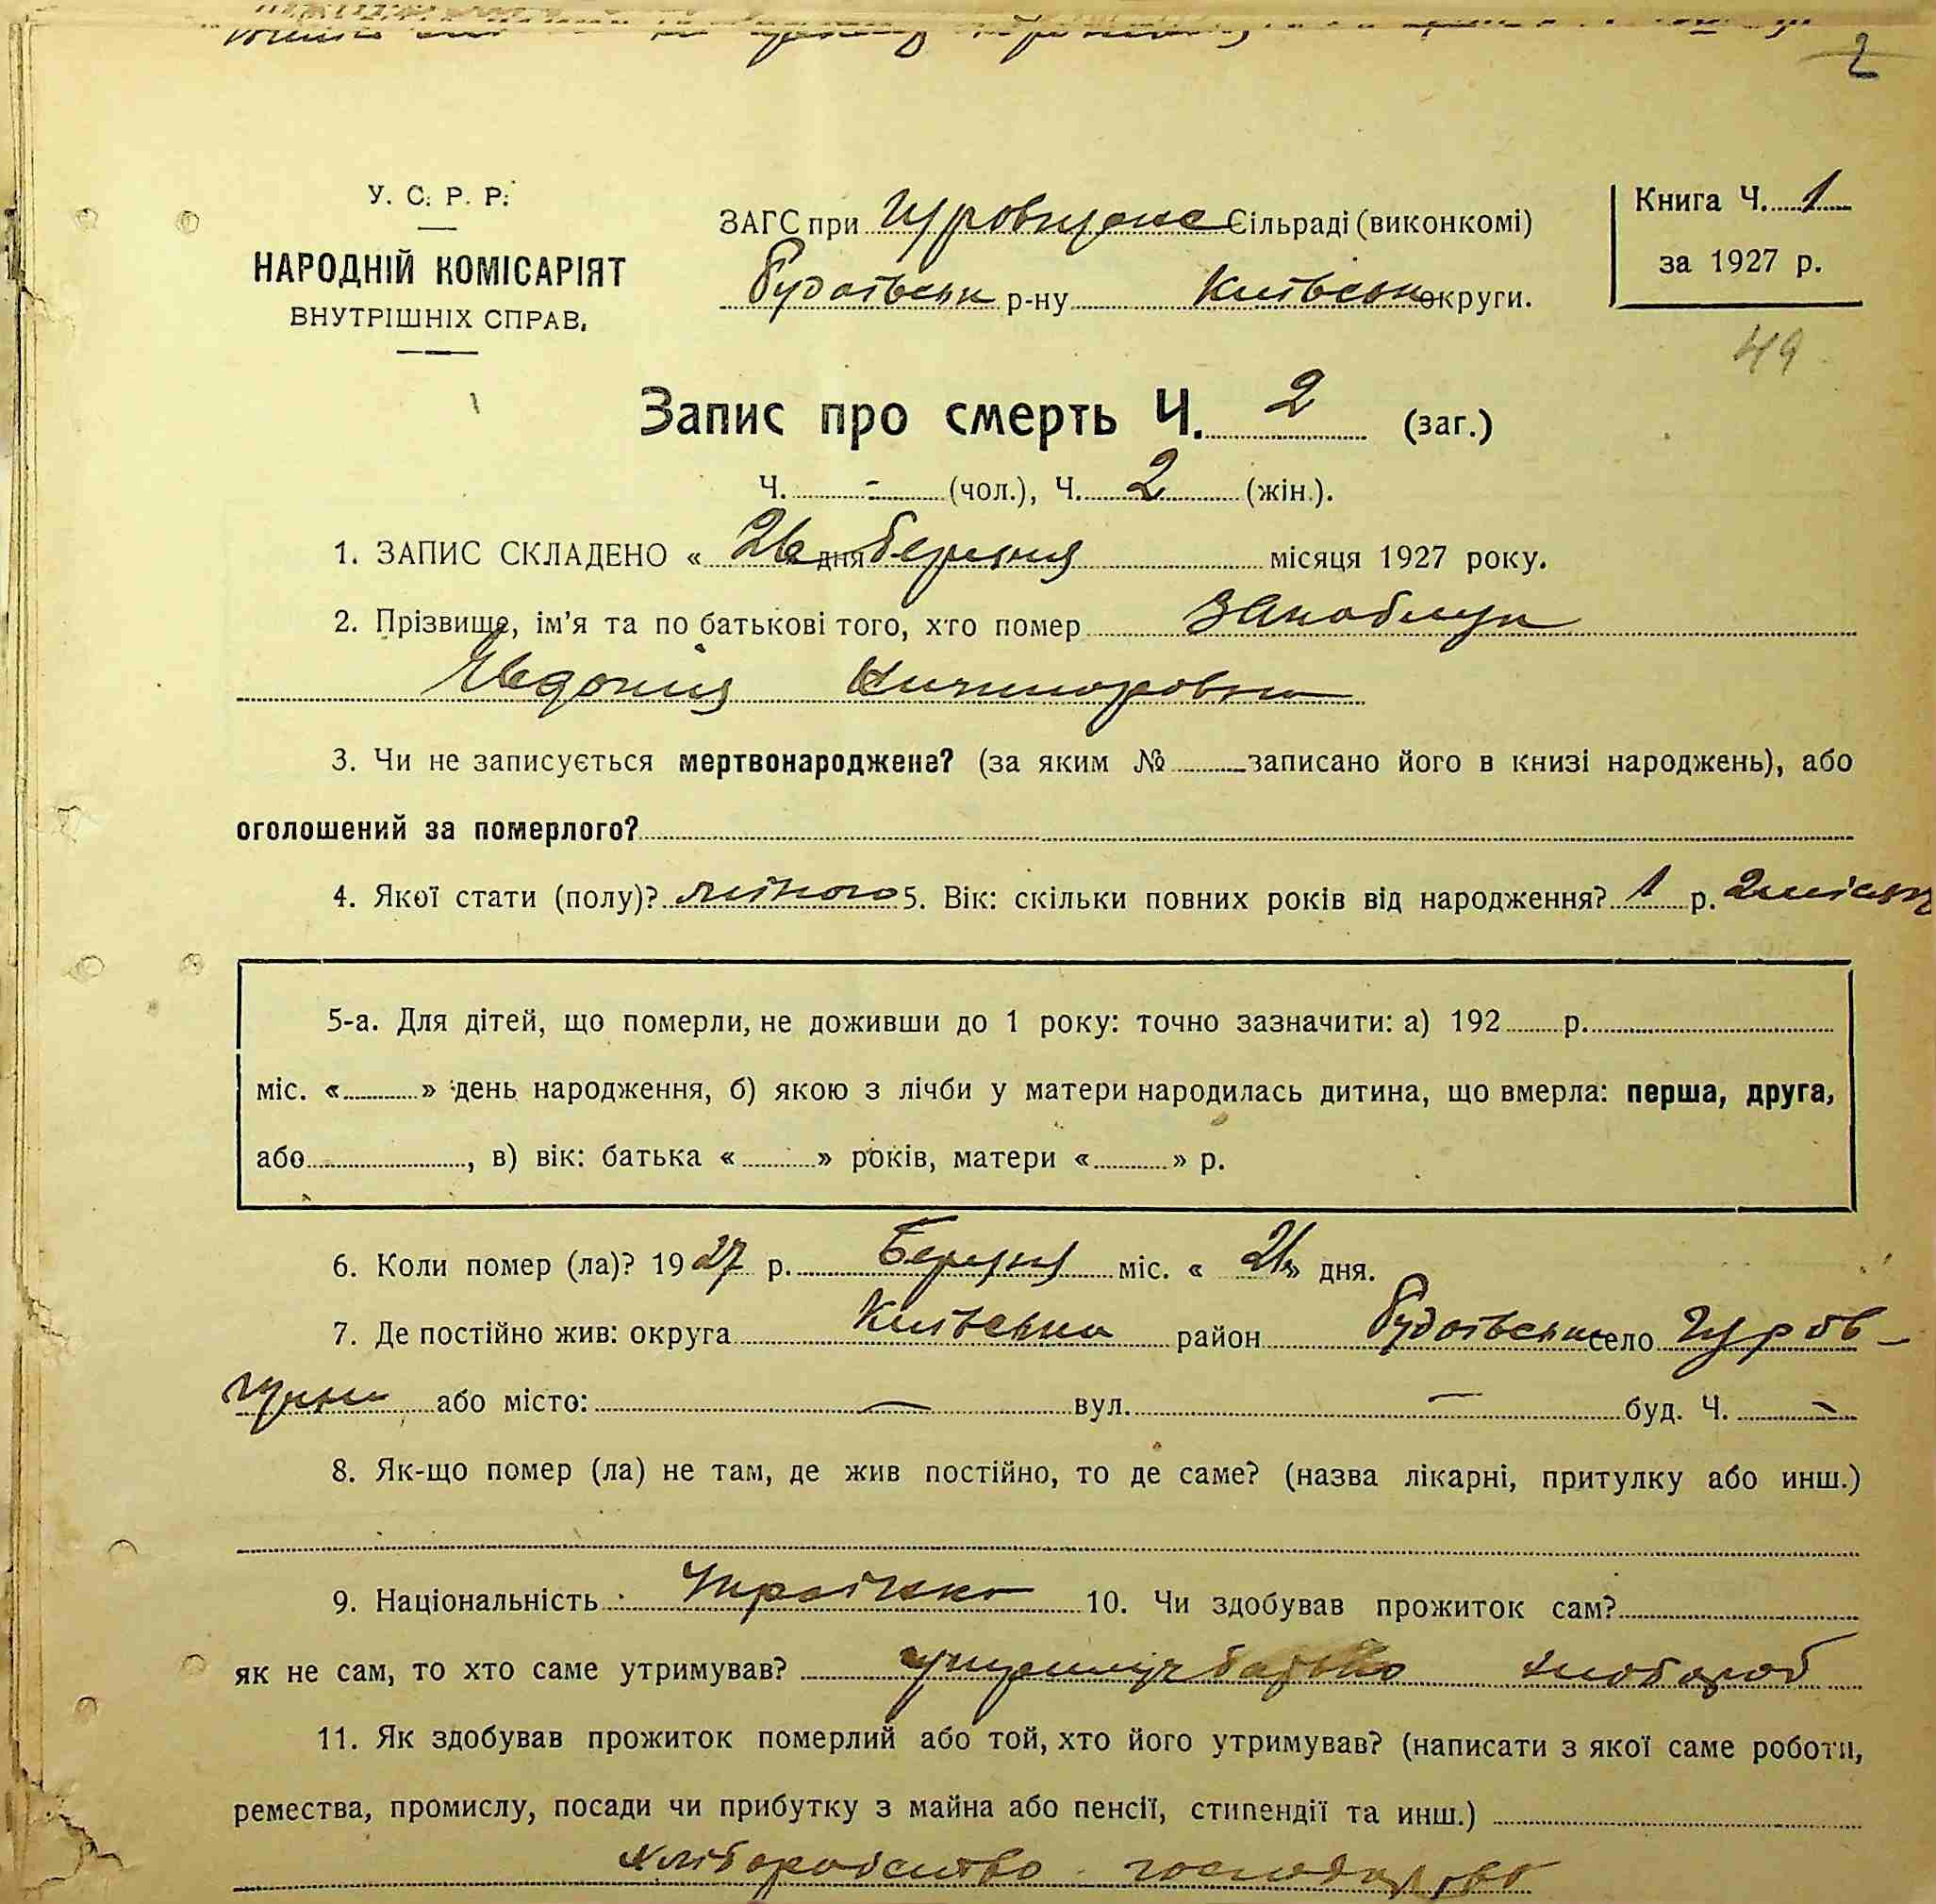 2
У. С. Р. Р.
НАРОДНІЙ КОМІСАРІЯТ
ВНУТРІШНІХ СПРАВ.
ЗАГС при Гуровщенс Сільраді (виконкомі)
Будаївськ р-ну Київськ округи.
Книга Ч. 1
за 1927 р.
49
Запис про смерть Ч. 2 (заг.)
Ч. - (чол.), Ч. 2 (жін.).
1. ЗАПИС СКЛАДЕНО « 26 дня березня місяця 1927 року.
2. Прізвище, ім'я та по батькові того, хто помер Заноблун
Явдокія
3. Чи не записується мертвонароджена? (за яким № записано його в книзі народжень), або
оголошений за померлого?
4. Якої стати (полу)? жіночого 5. Вік: скільки повних років від народження? 1 р. 2 місяц
5-а. Для дітей, що померли, не доживши до 1 року: точно зазначити: а) 192 р.
міс. « » день народження, б) якою з лічби у матери народилась дитина, що вмерла: перша, друга,
або , в) вік: батька « » років, матери « » р.
6. Коли помер (ла)? 1927 р. Березня міс. « 21 » дня.
7. Де постійно жив: округа Київська район Будаївськ село Гуров-
щина або місто: — вул. — буд. Ч. -
8. Як-що помер (ла) не там, де жив постійно, то де саме? (назва лікарні, притулку або инш.)
9. Національність: Українка 10. Чи здобував прожиток сам?
як не сам, то хто саме утримував? утриманич батько хлібороб
11. Як здобував прожиток померлий або той, хто його утримував? (написати з якої саме роботи,
ремества, промислу, посади чи прибутку з майна або пенсії, стипендії та инш.)
хліборобство господарство